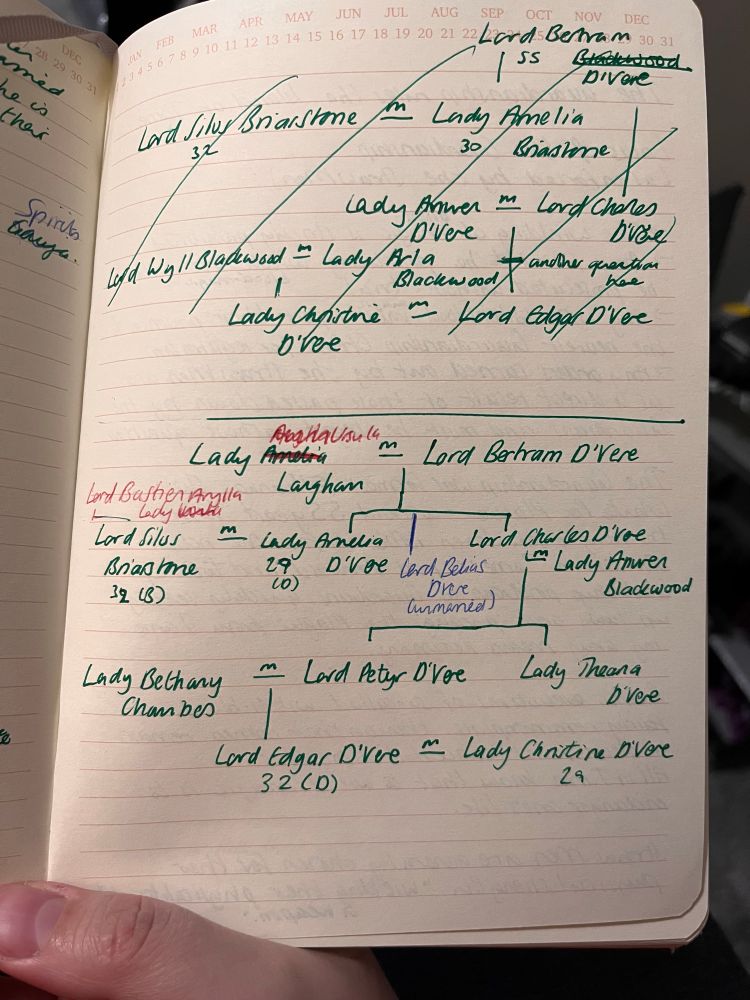 JAN FEB MAR APR MAY JUN JUL AUG SEP OCT NOV DEC
3 4 5 6 7 8 9 10 11 12 13 14 15 16 17 18 19 20 21 22 30 31
DEC
28 29 30 31
he is
their
Spirits
Lord Bertram
55 Blackwood
D'Vere
Lord Silus Briarstone m Lady Amelia
32 30 Briastone
Lady Anwen m Lord Charles
D'Vere D'Vere
Lord Wyll Blackwood m Lady Arla another question
Blackwood here
Lady Christine m Lord Edgar D'Vere
D'Vere
Ursula
Lady Amelia m Lord Bertram D'Vere
Langham
Lord Bastien
Lady
Lord Silus m Lady Amelia Lord Charles D'Vere
Briastone 29 D'Vere Lord Belias m Lady Anwen
32 (B) (D) D'vere Blackwood
(unmarried)
Lady Bethany m Lord Petyr D'Vere Lady Theana
Chambes D'Vere
Lord Edgar D'Vere m Lady Christine D'Vere
32 (D) 29